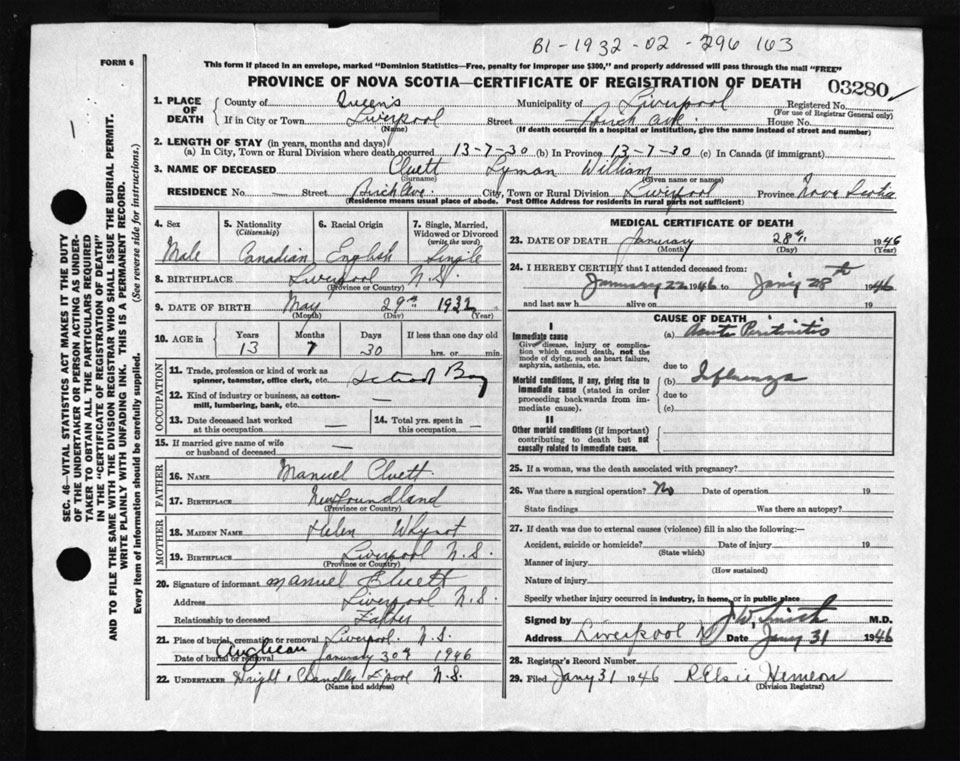 B1-1932-02-296 163
FORM 6
This form if placed in an envelope, marked "Dominion Statistics—Free, penalty for improper use $300," and properly addressed will pass through the mail "FREE"
PROVINCE OF NOVA SCOTIA—CERTIFICATE OF REGISTRATION OF DEATH
03280
1. PLACE OF DEATH
County of Queen's Municipality of Liverpool Registered No.
(For use of Registrar General only)
If in City or Town Liverpool Street Birch Ave. House No.
(Name) (If death occurred in a hospital or institution, give the name instead of street and number)
2. LENGTH OF STAY (in years, months and days)
(a) In City, Town or Rural Division where death occurred 13-7-30 (b) In Province 13-7-30 (c) In Canada (if immigrant)
3. NAME OF DECEASED Cluett Lyman William
(Surname) (Given name or names)
RESIDENCE No. — Street Birch Ave. City, Town or Rural Division Liverpool Province Nova Scotia
(Residence means usual place of abode. Post Office Address for residents in rural parts not sufficient)
4. Sex Male
5. Nationality (Citizenship) Canadian
6. Racial Origin English
7. Single, Married, Widowed or Divorced (write the word) Single
8. BIRTHPLACE Liverpool N.S.
(Province or Country)
9. DATE OF BIRTH May 29th 1932
(Month) (Day) (Year)
10. AGE in Years Months Days If less than one day old
13 7 30 hrs. or min.
OCCUPATION
11. Trade, profession or kind of work as spinner, teamster, office clerk, etc. School Boy
12. Kind of industry or business, as cotton-mill, lumbering, bank, etc. —
13. Date deceased last worked at this occupation — 14. Total yrs. spent in this occupation —
15. If married give name of wife or husband of deceased —
FATHER
16. NAME Manuel Cluett
17. BIRTHPLACE Newfoundland
(Province or Country)
MOTHER
18. MAIDEN NAME Helen Whynot
19. BIRTHPLACE Liverpool N.S.
(Province or Country)
20. Signature of informant Manuel Cluett
Address Liverpool N.S.
Relationship to deceased Father
21. Place of burial, cremation or removal Liverpool. N.S.
Anglican
Date of burial or removal January 30th 1946
22. UNDERTAKER Wright & Chandler L'pool N.S.
(Name and address)
MEDICAL CERTIFICATE OF DEATH
23. DATE OF DEATH January 28th 1946
(Month) (Day)
24. I HEREBY CERTIFY that I attended deceased from:
January 22 1946 to Jan'y 28th 1946
and last saw h alive on 19
CAUSE OF DEATH
I
Immediate cause
Give disease, injury or complication which caused death, not the mode of dying, such as heart failure, asphyxia, asthenia, etc.
(a) Acute Peritinitis
due to
Morbid conditions, if any, giving rise to immediate cause (stated in order proceeding backwards from immediate cause).
(b) Influenza
due to
(c)
II
Other morbid conditions (if important) contributing to death but not causally related to immediate cause.
25. If a woman, was the death associated with pregnancy?
26. Was there a surgical operation? No Date of operation 19
State findings Was there an autopsy?
27. If death was due to external causes (violence) fill in also the following:—
Accident, suicide or homicide? Date of injury 19
(State which)
Manner of injury
(How sustained)
Nature of injury
Specify whether injury occurred in industry, in home, or in public place
Signed by J W Smith M.D.
Address Liverpool Date Jany 31 1946
28. Registrar's Record Number
29. Filed Jany 31 1946 R Elsie Hemeon
(Division Registrar)
SEC. 46—VITAL STATISTICS ACT MAKES IT THE DUTY
OF THE UNDERTAKER OR PERSON ACTING AS UNDER-
TAKER TO OBTAIN ALL THE PARTICULARS REQUIRED
IN THE "CERTIFICATE OF REGISTRATION OF DEATH"
AND TO FILE THE SAME WITH THE DIVISION REGISTRAR WHO SHALL ISSUE THE BURIAL PERMIT.
WRITE PLAINLY WITH UNFADING INK. THIS IS A PERMANENT RECORD.
Every item of information should be carefully supplied. (See reverse side for instructions.)